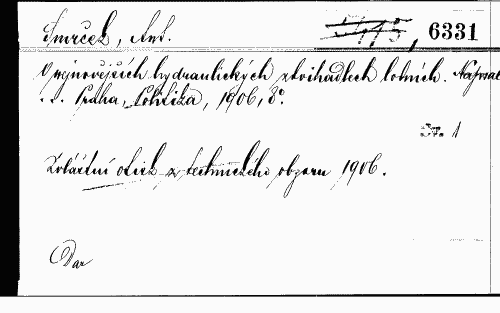 Smrček, Ant. 6331
O nejnovějších hydraulických zdvihadlech lodních. Napsal
Praha, 1906, 8°.
Sv. 1
Zvláštní otisk z technického obzoru 1906.
Dar